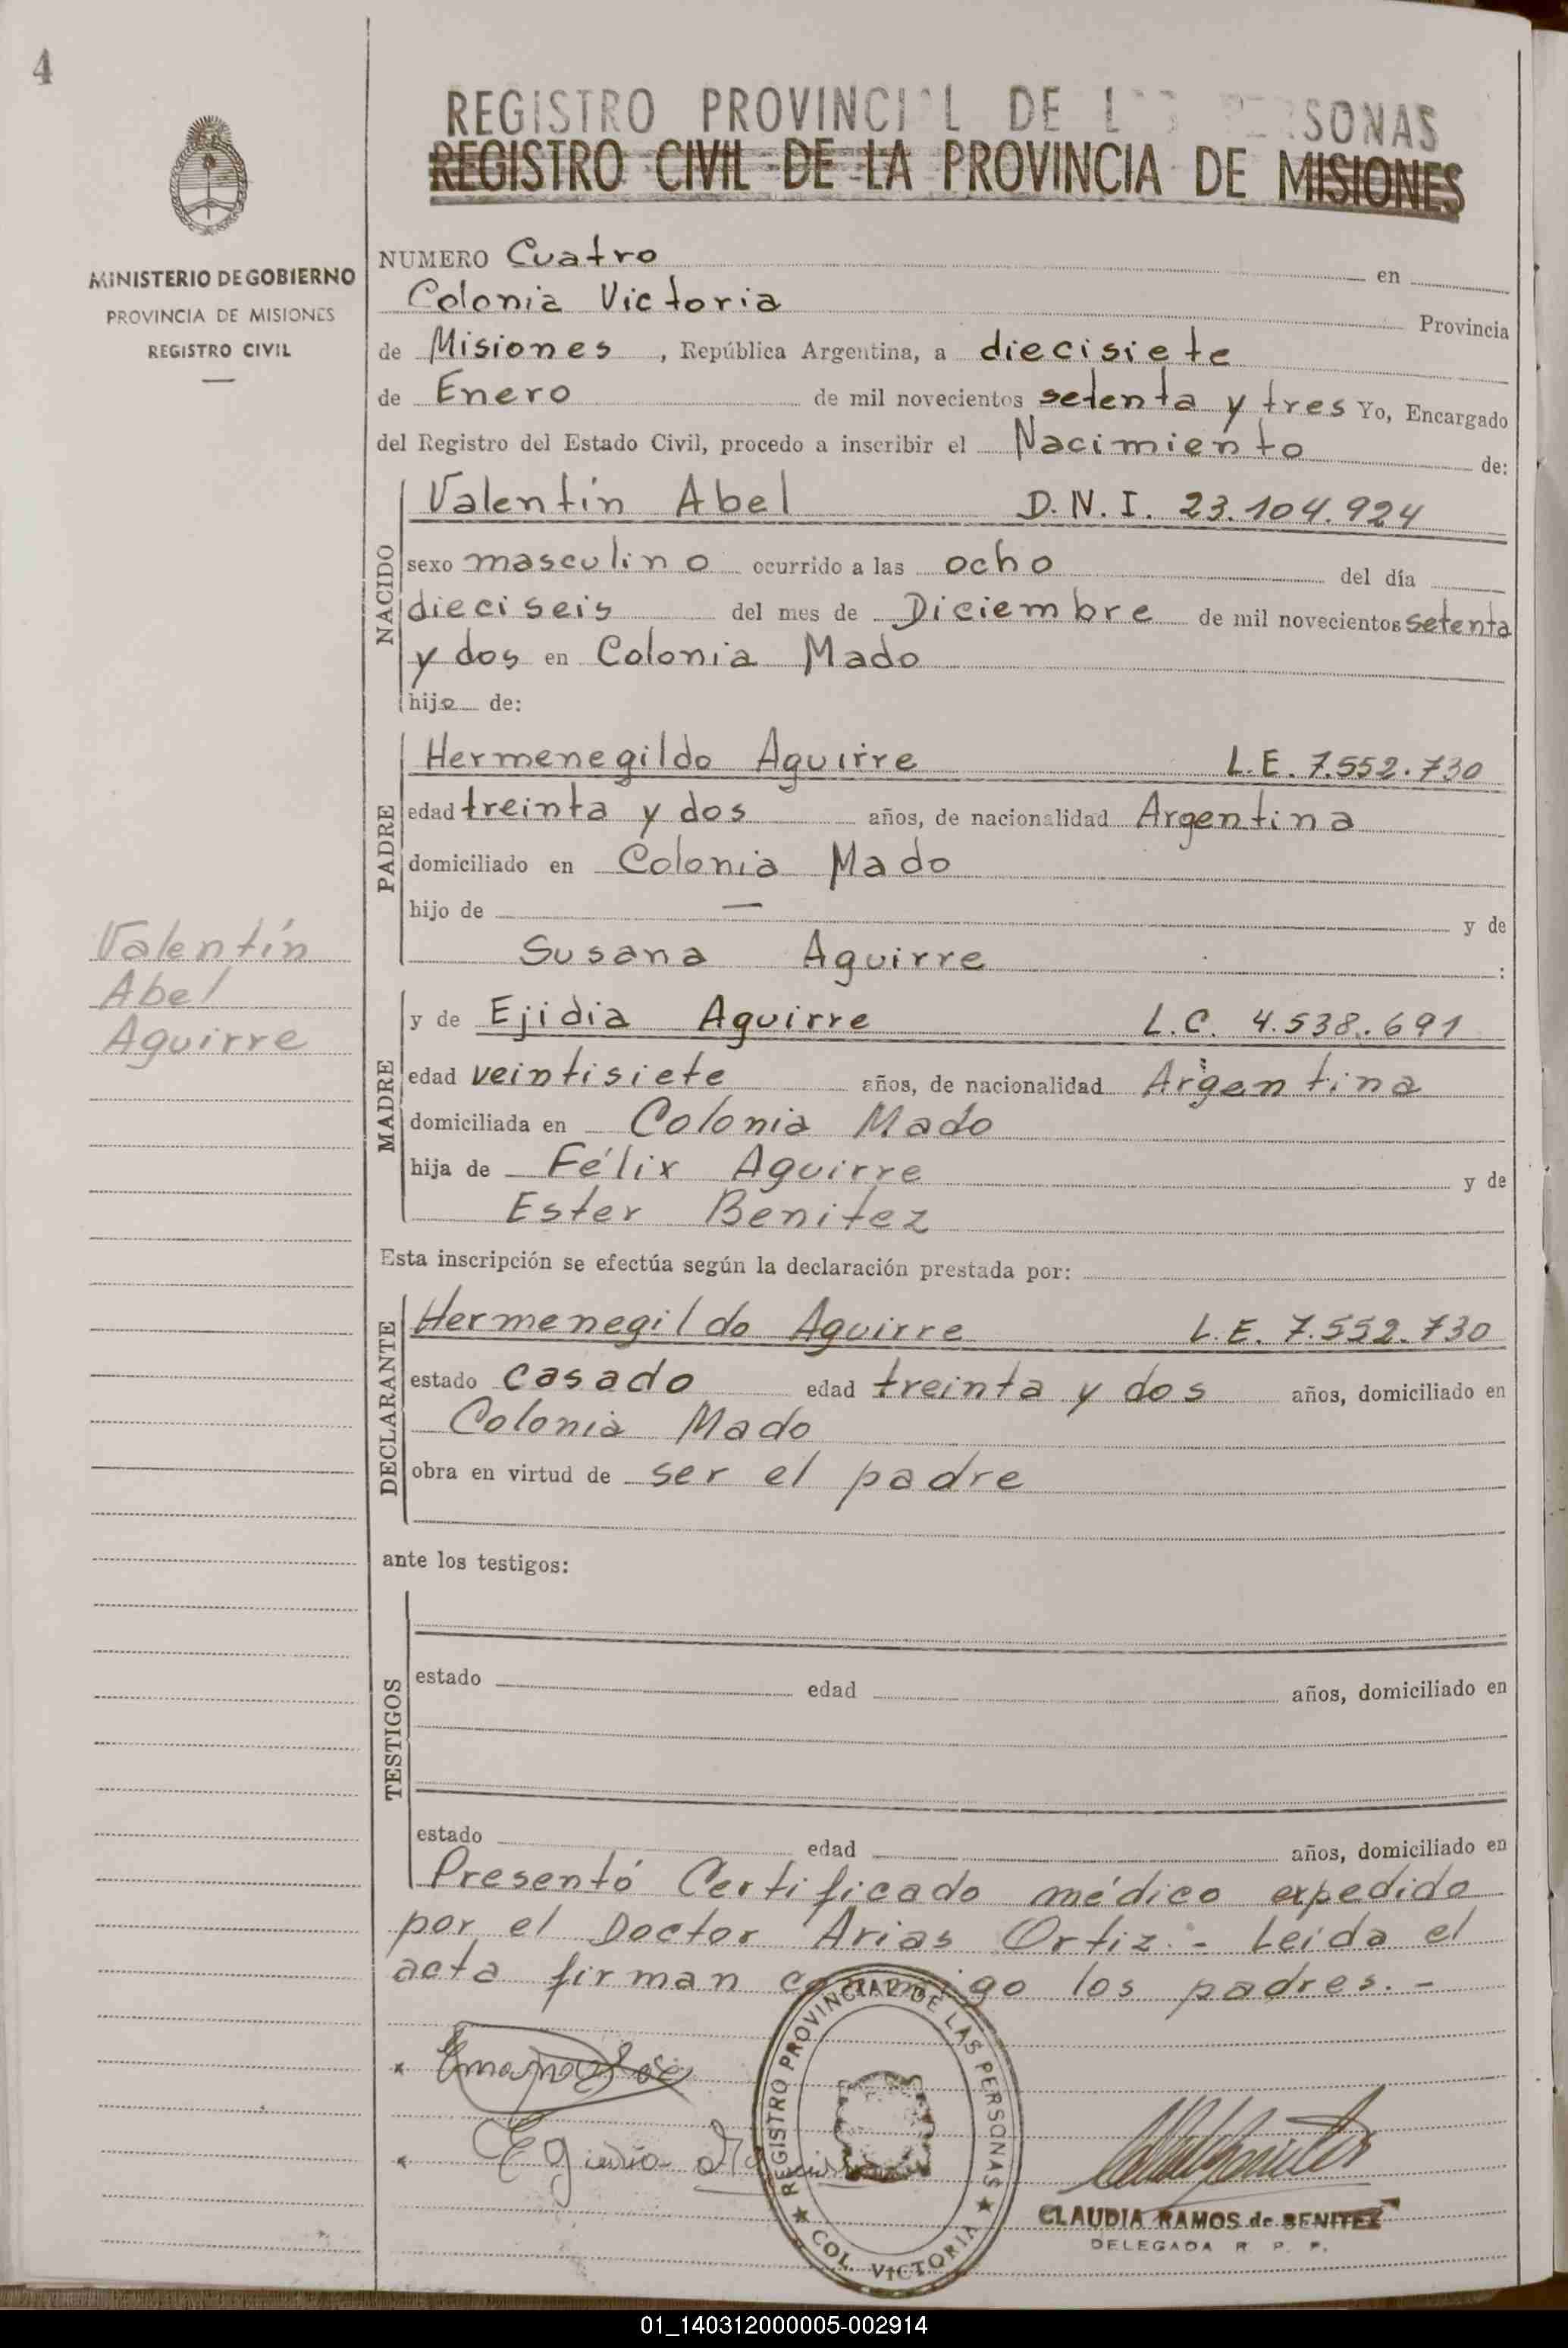 4
REGISTRO PROVINCIAL DE LAS PERSONAS
REGISTRO CIVIL DE LA PROVINCIA DE MISIONES
MINISTERIO DE GOBIERNO
PROVINCIA DE MISIONES
REGISTRO CIVIL
NUMERO Cuatro en
Colonia Victoria Provincia
de Misiones, República Argentina, a diecisiete
de Enero de mil novecientos setenta y tres Yo, Encargado
del Registro del Estado Civil, procedo a inscribir el Nacimiento de:
NACIDO
Valentín Abel D.N.I. 23.104.924
sexo masculino ocurrido a las ocho del día
dieciseis del mes de Diciembre de mil novecientos setenta
y dos en Colonia Mado
hijo de:
PADRE
Hermenegildo Aguirre L.E. 7.552.730
edad treinta y dos años, de nacionalidad Argentina
domiciliado en Colonia Mado
hijo de — y de
Susana Aguirre :
Valentín
Abel
Aguirre
MADRE
y de Ejidia Aguirre L.C. 4.538.691
edad veintisiete años, de nacionalidad Argentina
domiciliada en Colonia Mado
hija de Félix Aguirre y de
Ester Benitez
Esta inscripción se efectúa según la declaración prestada por:
DECLARANTE
Hermenegildo Aguirre L.E. 7.552.730
estado casado edad treinta y dos años, domiciliado en
Colonia Mado
obra en virtud de ser el padre
ante los testigos:
TESTIGOS
estado edad años, domiciliado en
estado edad años, domiciliado en
Presentó Certificado médico expedido
por el Doctor Arias Ortiz.- Leida el
acta firman conmigo los padres.-
REGISTRO PROVINCIAL DE LAS PERSONAS
COL. VICTORIA
CLAUDIA RAMOS de BENITEZ
DELEGADA R. P. P.
01_140312000005-002914